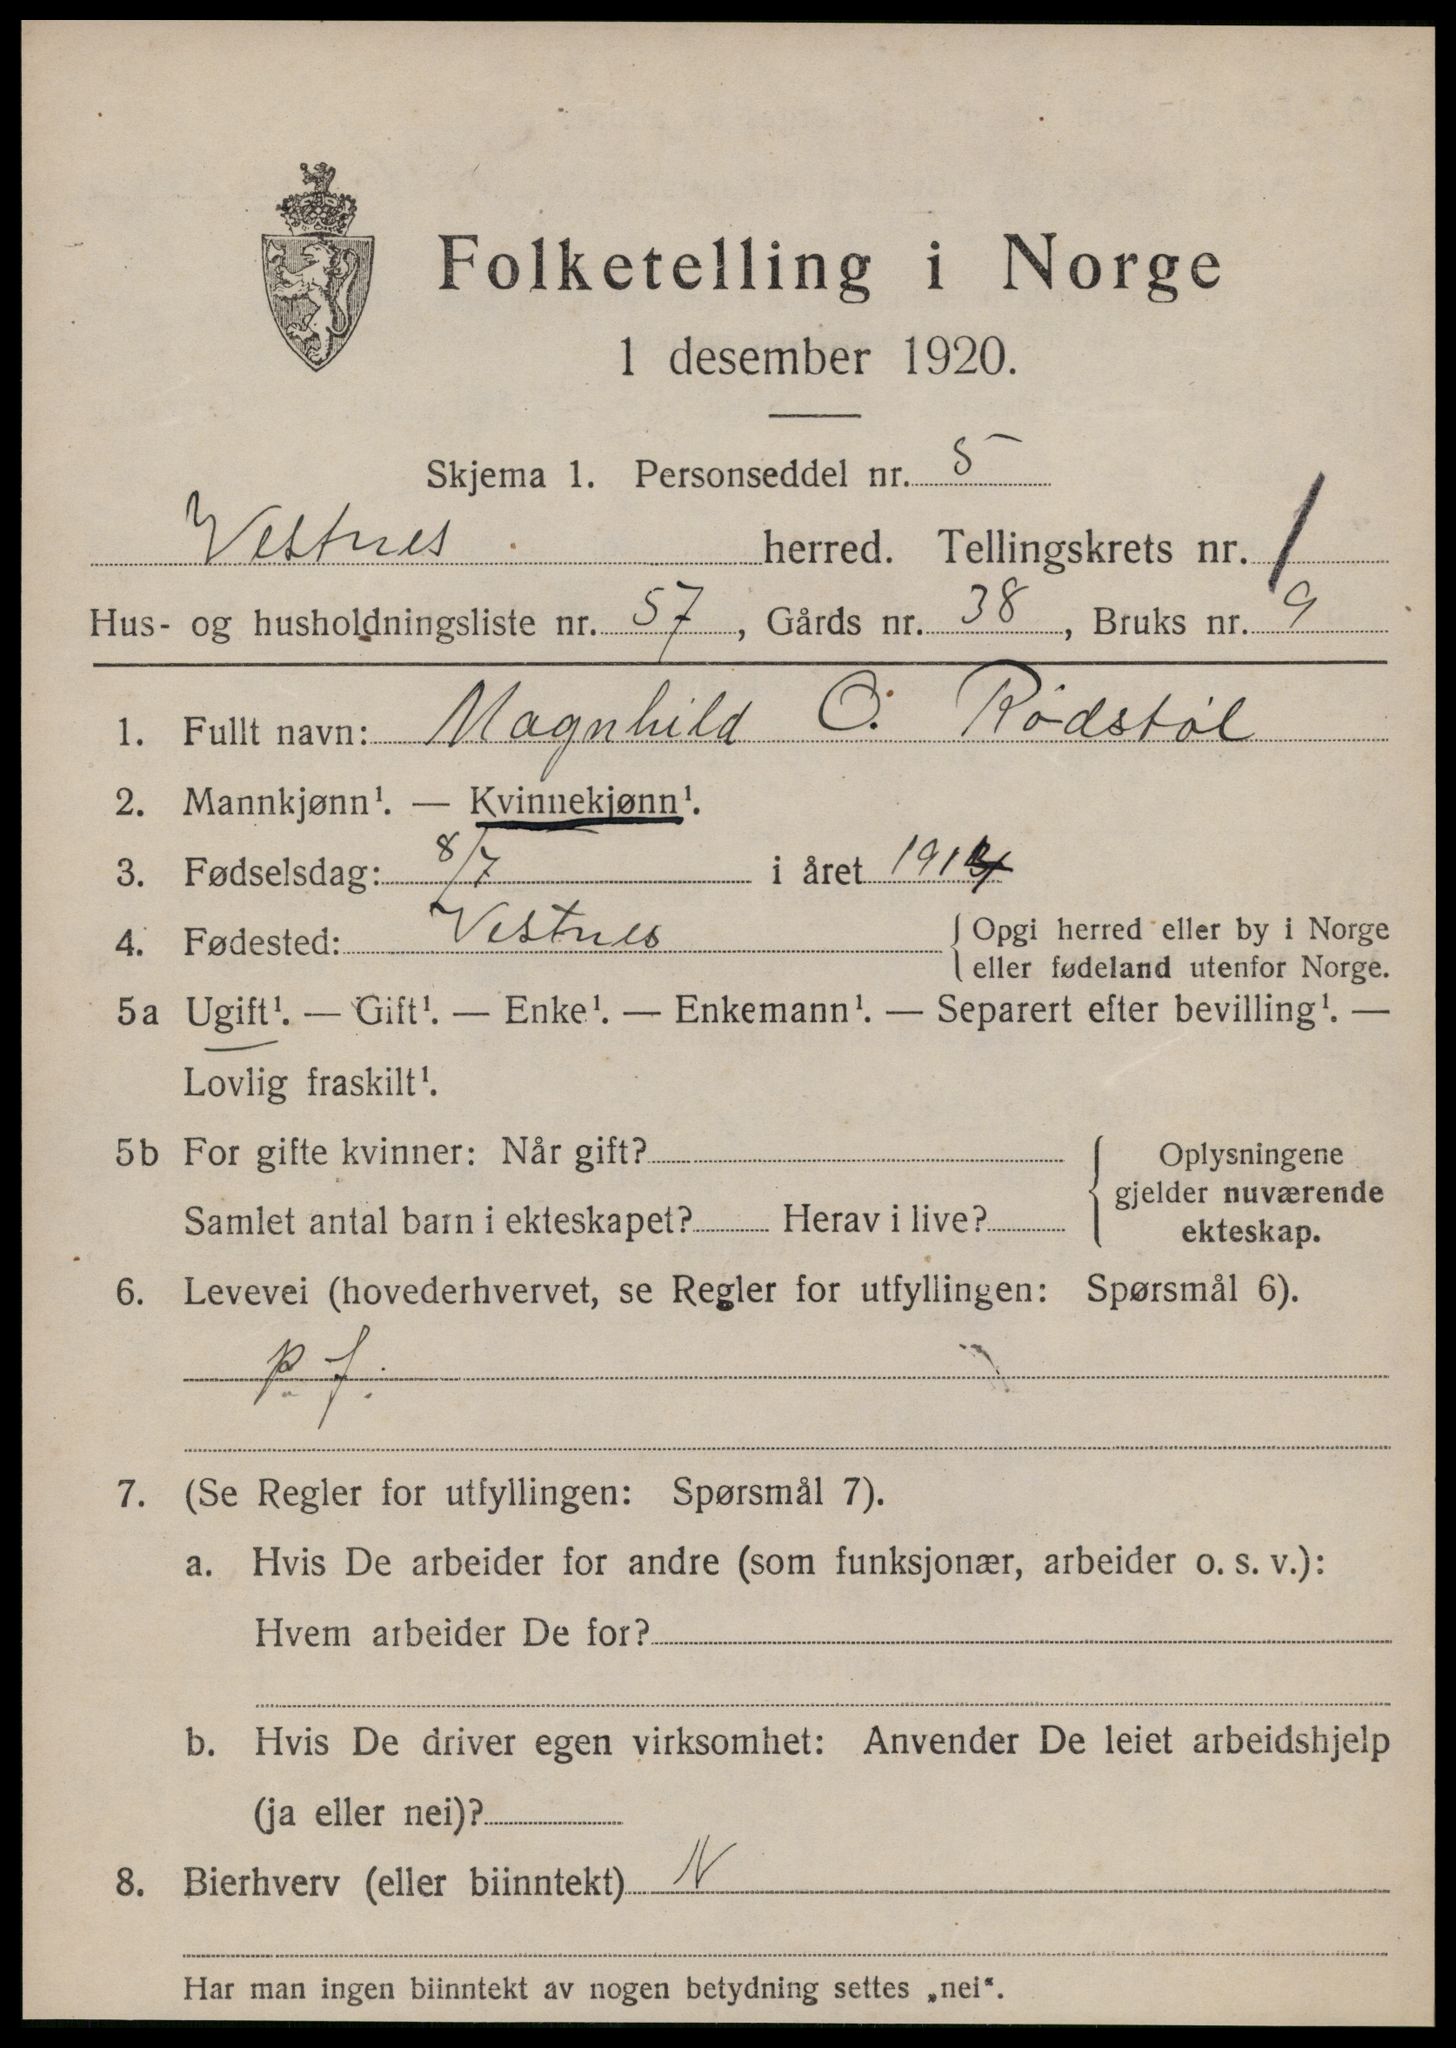 Folketelling i Norge
1 desember 1920.
Skjema 1. Personseddel nr. 5
Vestnes herred. Tellingskrets nr. 1
Hus- og husholdningsliste nr. 57, Gårds nr. 38, Bruks nr. 9
1. Fullt navn: Magnhild O. Rødstøl
2. Mannkjønn¹. — Kvinnekjønn¹.
3. Fødselsdag: 8/7 i året 1914
4. Fødested: Vestnes { Opgi herred eller by i Norge
eller fødeland utenfor Norge.
5a Ugift¹. — Gift¹. — Enke¹. — Enkemann¹. — Separert efter bevilling¹. —
Lovlig fraskilt¹.
5b For gifte kvinner: Når gift?
Samlet antal barn i ekteskapet? Herav i live?
{ Oplysningene
gjelder nuværende
ekteskap.
6. Levevei (hovederhvervet, se Regler for utfyllingen: Spørsmål 6).
p. f.
7. (Se Regler for utfyllingen: Spørsmål 7).
a. Hvis De arbeider for andre (som funksjonær, arbeider o. s. v.):
Hvem arbeider De for?
b. Hvis De driver egen virksomhet: Anvender De leiet arbeidshjelp
(ja eller nei)?
8. Bierhverv (eller biinntekt) N
Har man ingen biinntekt av nogen betydning settes „nei“.